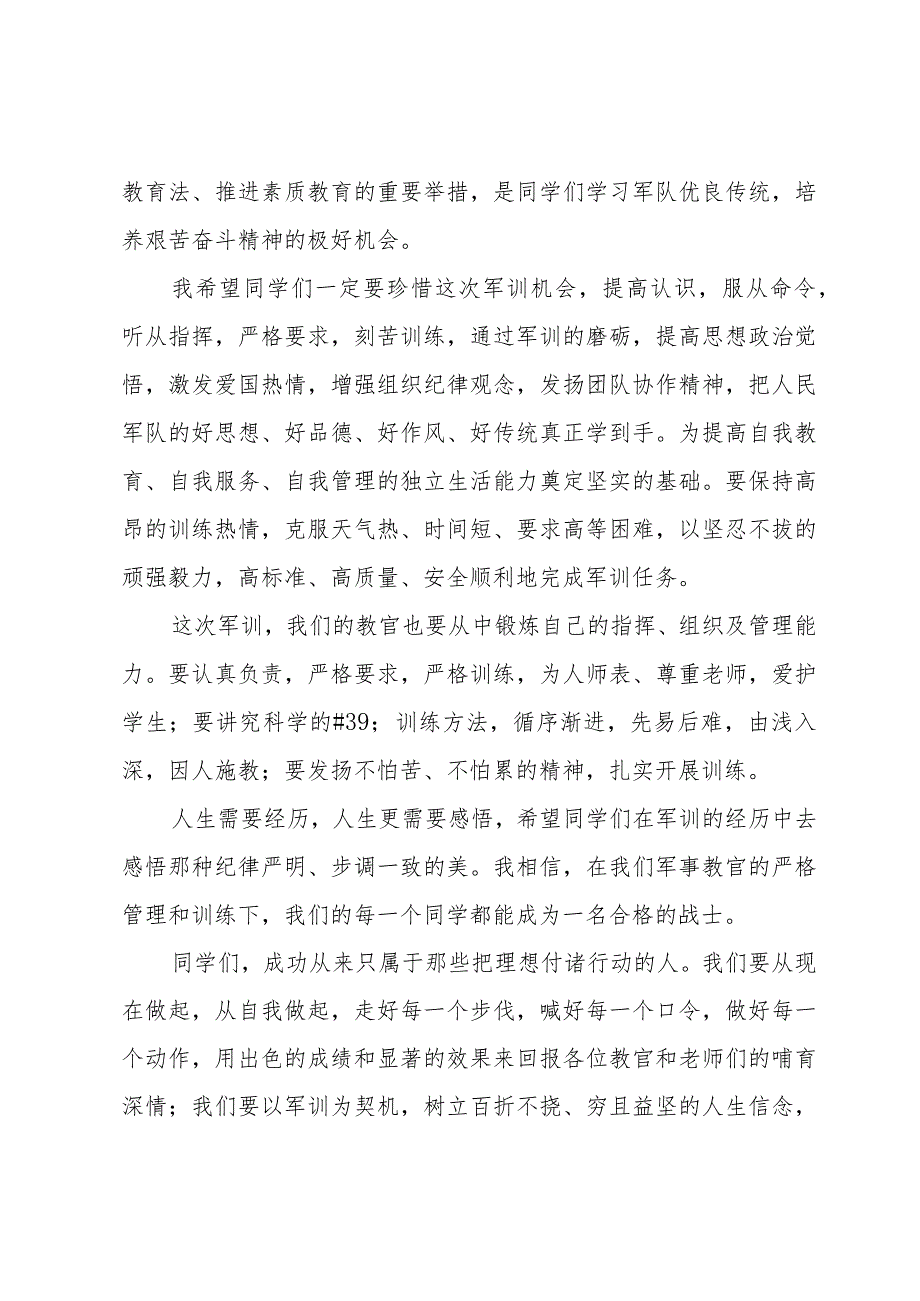 教育法、推进素质教育的重要举措，是同学们学习军队优良传统，培
养艰苦奋斗精神的极好机会。
我希望同学们一定要珍惜这次军训机会，提高认识，服从命令，
听从指挥，严格要求，刻苦训练，通过军训的磨砺，提高思想政治觉
悟，激发爱国热情，增强组织纪律观念，发扬团队协作精神，把人民
军队的好思想、好品德、好作风、好传统真正学到手。为提高自我教
育、自我服务、自我管理的独立生活能力奠定坚实的基础。要保持高
昂的训练热情，克服天气热、时间短、要求高等困难，以坚忍不拔的
顽强毅力，高标准、高质量、安全顺利地完成军训任务。
这次军训，我们的教官也要从中锻炼自己的指挥、组织及管理能
力。要认真负责，严格要求，严格训练，为人师表、尊重老师，爱护
学生；要讲究科学的#39；训练方法，循序渐进，先易后难，由浅入
深，因人施教；要发扬不怕苦、不怕累的精神，扎实开展训练。
人生需要经历，人生更需要感悟，希望同学们在军训的经历中去
感悟那种纪律严明、步调一致的美。我相信，在我们军事教官的严格
管理和训练下，我们的每一个同学都能成为一名合格的战士。
同学们，成功从来只属于那些把理想付诸行动的人。我们要从现
在做起，从自我做起，走好每一个步伐，喊好每一个口令，做好每一
个动作，用出色的成绩和显著的效果来回报各位教官和老师们的哺育
深情；我们要以军训为契机，树立百折不挠、穷且益坚的人生信念，